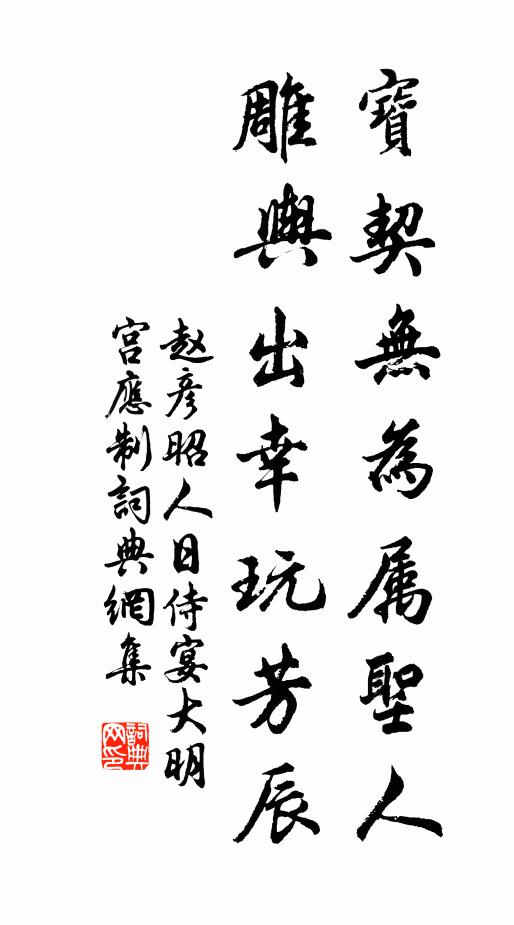 寶契無為属聖人
雕輿出幸玩芳辰
赵彦昭人日侍宴大明
宫應制詞典網集
詞典网印